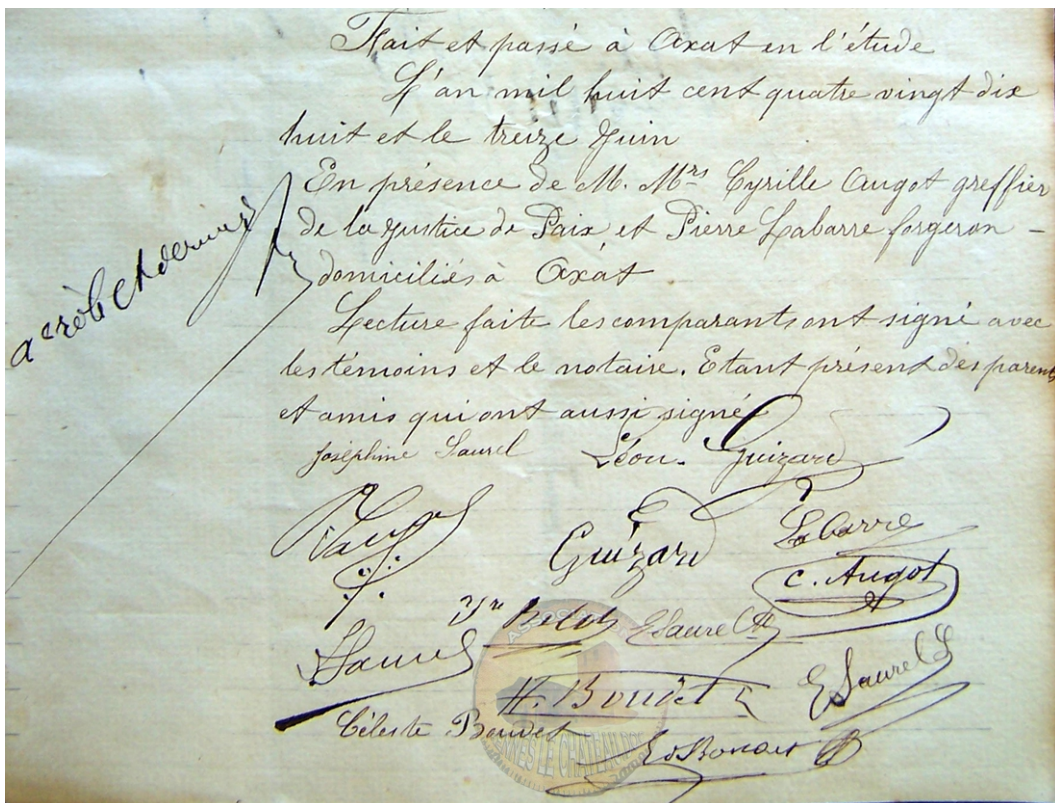 Fait et passé à Axat en l'étude
L'an mil huit cent quatre vingt dix
huit et le treize Juin
En présence de M. Mrs Cyrille Augot greffier
de la Justice de Paix et Pierre Labarre forgeron -
domiciliés à Axat
Lecture faite les comparants ont signé avec
les témoins et le notaire. Etant présent des parents
et amis qui ont aussi signé
Joséphine Saurel Léon Guizard
Guizard Labarre
C. Augot
E Saurel
H. Boudet E Saurel
Céleste Boudet
ASSOCIA
RENNES LE CHATEAU DOC